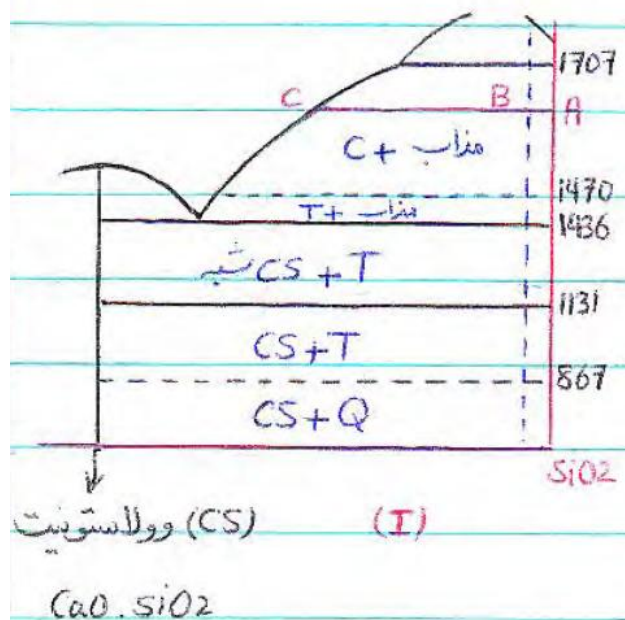 1707
C B A
C + مذاب
1470
T + مذاب
1436
شبه CS + T
1131
CS + T
867
CS + Q
SiO2
وولاستونیت (CS)
(I)
CaO . SiO2